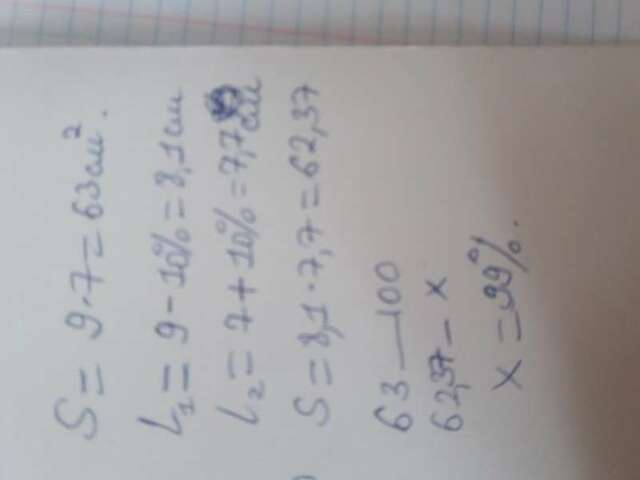 S = 9·7 = 63 см².
L₁ = 9 - 10% = 8,1 см
L₂ = 7 + 10% = 7,7 см
S = 8,1·7,7 = 62,37
63 — 100
62,37 — x
x = 99%.